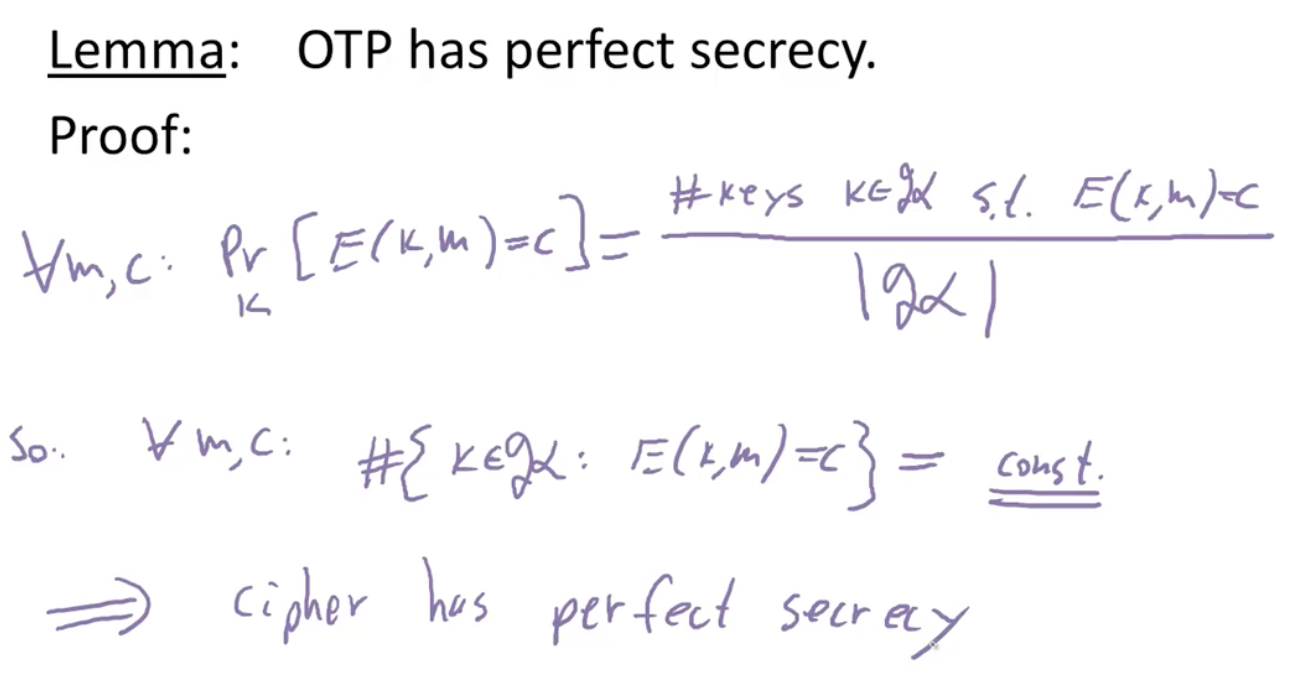 Lemma: OTP has perfect secrecy.
Proof:
∀m,c: Pr_K [E(k,m)=c] = (#keys k∈𝒦 s.t. E(k,m)=c) / |𝒦|
So: ∀ m,c: #{k∈𝒦: E(k,m)=c} = const.
⟹ cipher has perfect secrecy